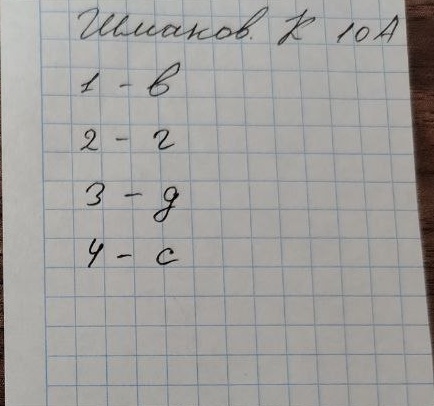 Шмаков. К 10А
1 - в
2 - г
3 - д
4 - с